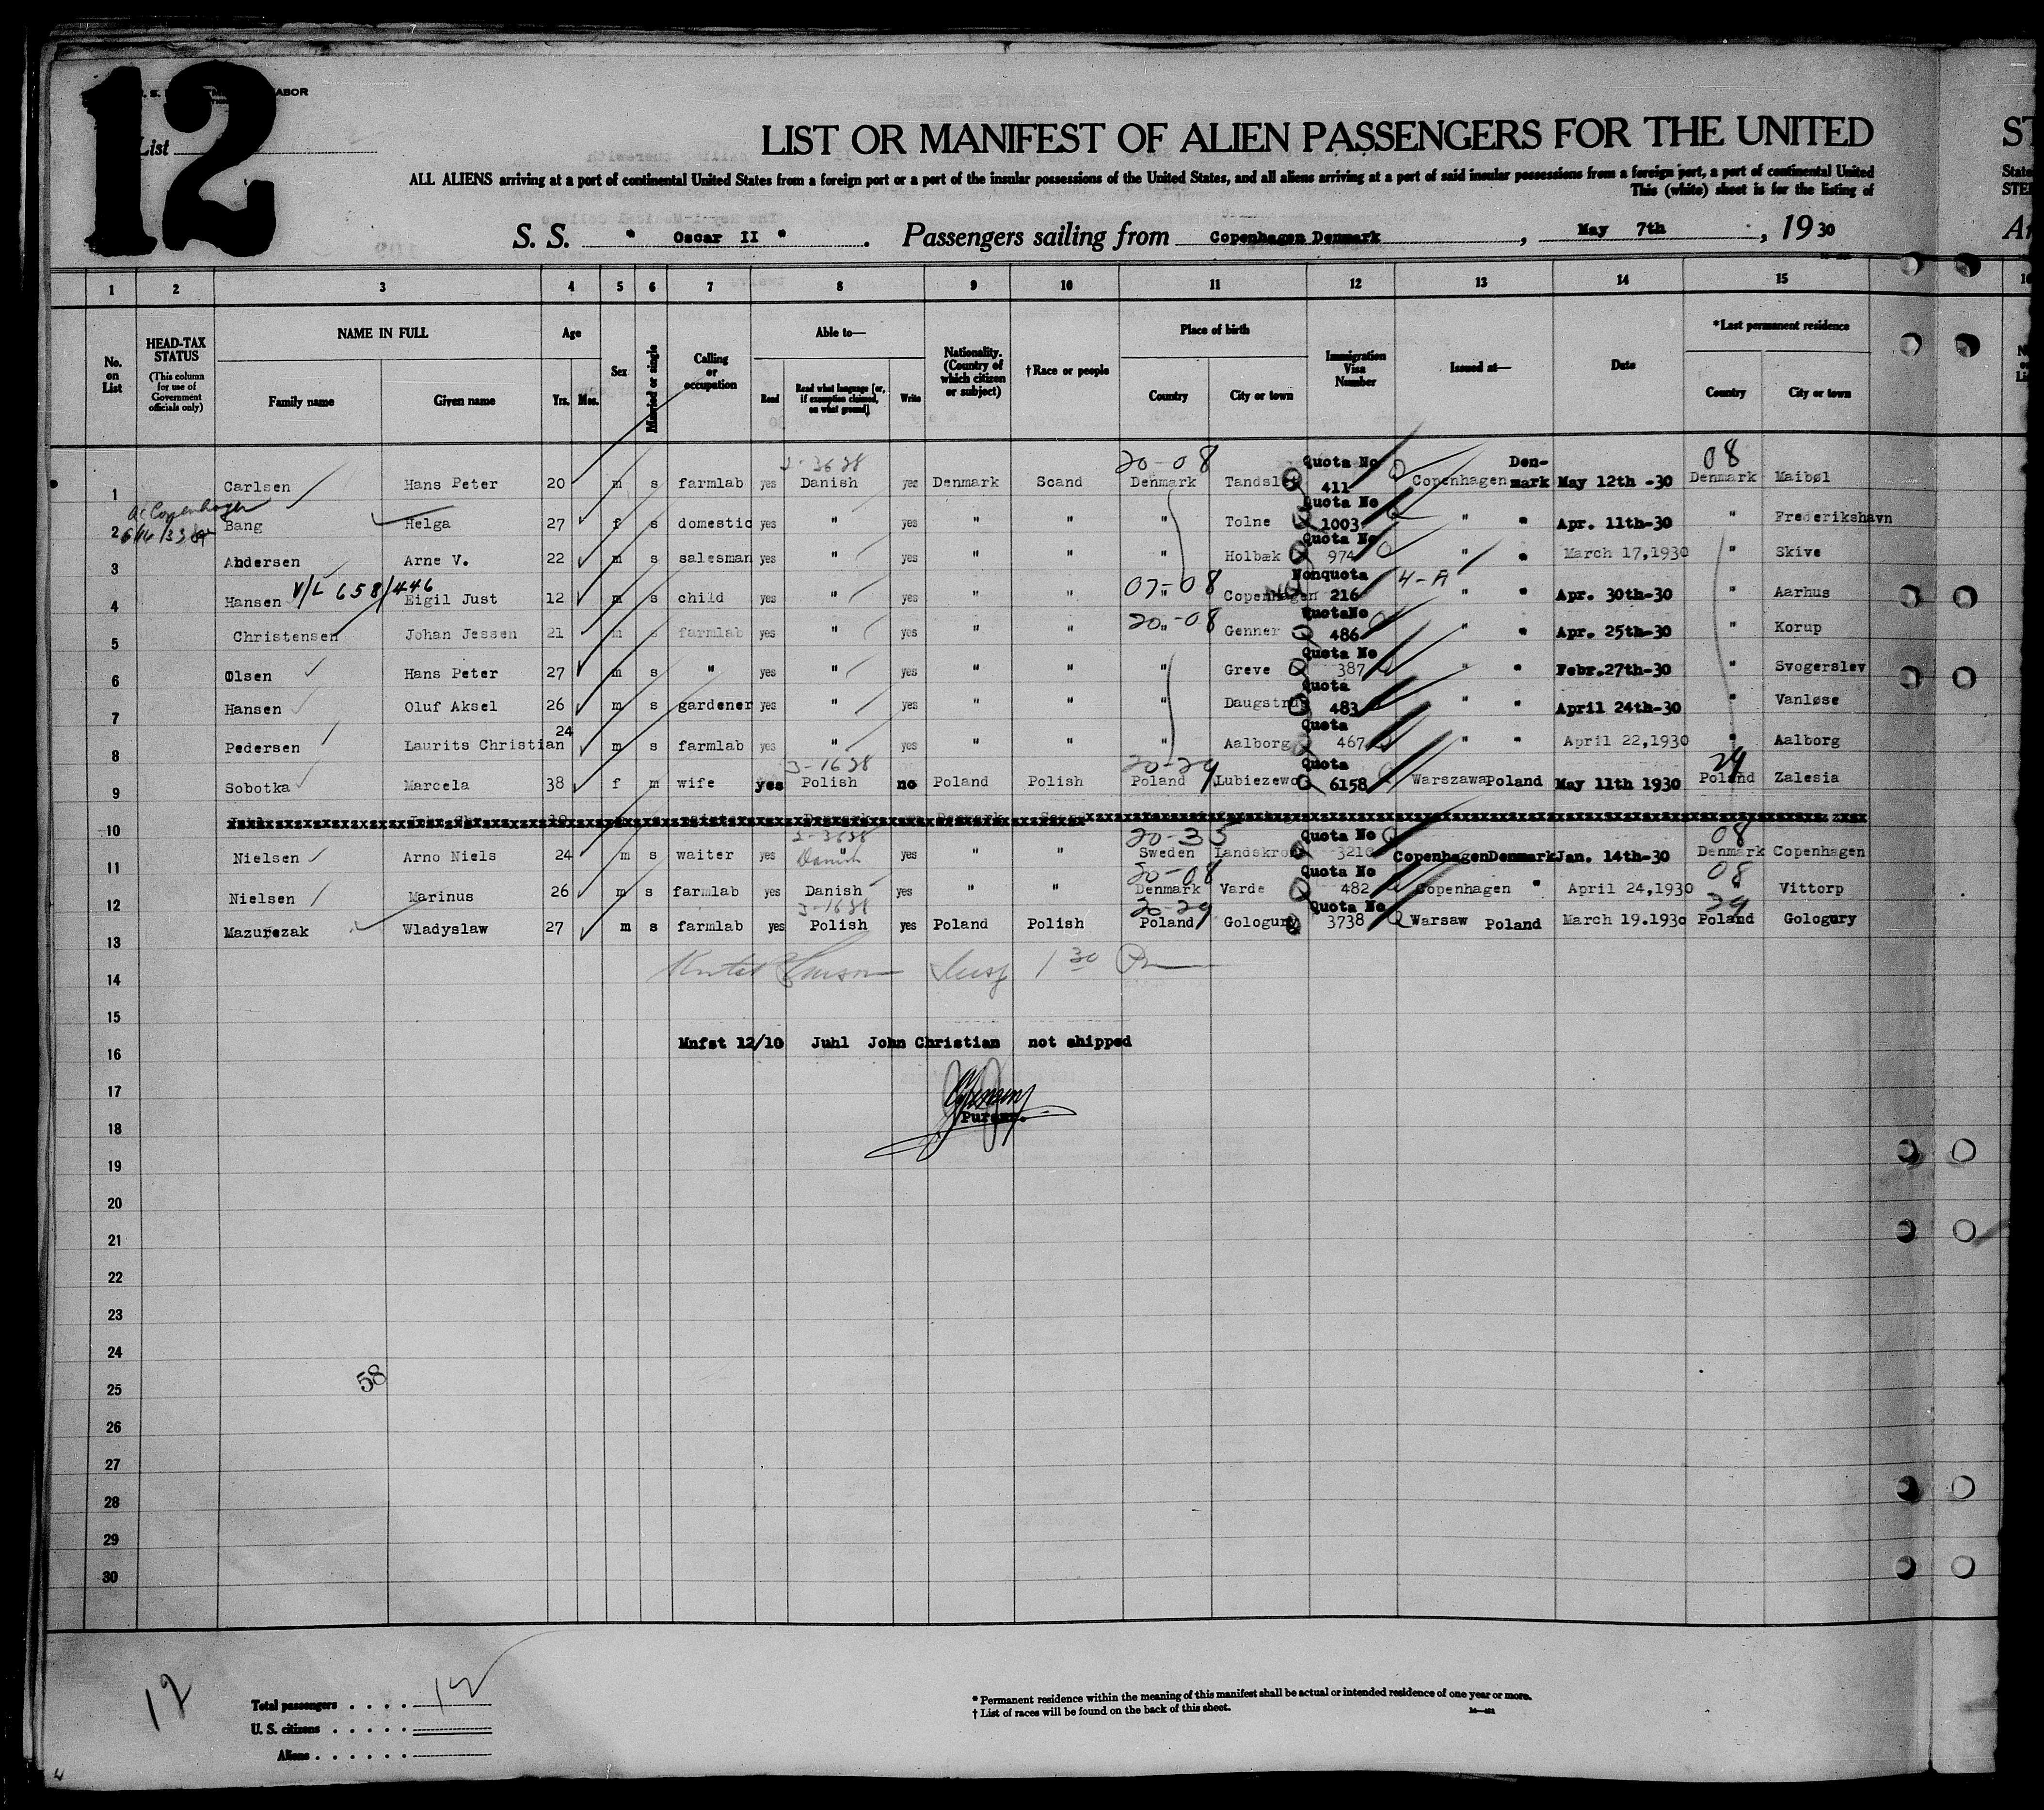 12
ABOR
List
LIST OR MANIFEST OF ALIEN PASSENGERS FOR THE UNITED
ST
ALL ALIENS arriving at a port of continental United States from a foreign port or a port of the insular possessions of the United States, and all aliens arriving at a port of said insular possessions from a foreign port, a port of continental United
State
This (white) sheet is for the listing of
S. S. " Oscar II " . Passengers sailing from Copenhagen Denmark , May 7th , 19 30
1 2 3 4 5 6 7 8 9 10 11 12 13 14 15
No. on List
HEAD-TAX STATUS (This column for use of Government officials only)
NAME IN FULL
Family name Given name
Age
Yrs. Mos.
Sex
Married or single
Calling or occupation
Able to—
Read Read what language [or, if exemption claimed, on what ground] Write
Nationality. (Country of which citizen or subject)
†Race or people
Place of birth
Country City or town
Immigration Visa Number
Issued at—
Date
*Last permanent residence
Country City or town
20-08 Quota No Den- 08
1 Carlsen Hans Peter 20 m s farmlab yes Danish yes Denmark Scand Denmark 411 Copenhagen mark May 12th -30 Denmark Maibøl
Copenhagen Quota No
2 Bang Helga 27 f s domestic yes " yes " " " Tolne 1003 " " Apr. 11th-30 " Frederikshavn
Quota No
3 Andersen Arne V. 22 m s salesman yes " yes " " " Holbæk 974 " " March 17,1930 " Skive
V/L 658/446 07-08 Nonquota 4-A
4 Hansen Eigil Just 12 m s child yes " yes " " " Copenhagen 216 " " Apr. 30th-30 " Aarhus
20-08 QuotaNo
5 Christensen Johan Jessen 21 m s farmlab yes " yes " " " Genner 486 " " Apr. 25th-30 " Korup
Quota No
6 Olsen Hans Peter 27 m s " yes " yes " " " Greve 387 " " Febr.27th-30 " Svogerslev
Quota
7 Hansen Oluf Aksel 26 m s gardener yes " yes " " " Daugstrup 483 " " April 24th-30 " Vanløse
24 Quota
8 Pedersen Laurits Christian m s farmlab yes " yes " " " Aalborg 467 " " April 22,1930 " Aalborg
20-29 Quota
9 Sobotka Marcela 38 f m wife yes Polish no Poland Polish Poland Lubiezewo 6158 Warszawa Poland May 11th 1930 Poland Zalesia
10
20-35 Quota No 08
11 Nielsen Arno Niels 24 m s waiter yes Danish yes " " Sweden 3210 Copenhagen Denmark Jan. 14th-30 Denmark Copenhagen
20-08 Quota No 08
12 Nielsen Marinus 26 m s farmlab yes Danish yes " " Denmark Varde 482 Copenhagen " April 24,1930 " Vittorp
20-29 Quota No
13 Mazurezak Wladyslaw 27 m s farmlab yes Polish yes Poland Polish Poland Gologury 3738 Warsaw Poland March 19.1930 Poland Gologury
14
15
16 Mnfst 12/10 Juhl John Christian not shipped
17
Purser.
18
19
20
21
22
23
24
58
25
26
27
28
29
30
12
Total passengers . . . . 12
U. S. citizens . . . . .
Aliens . . . . . .
* Permanent residence within the meaning of this manifest shall be actual or intended residence of one year or more.
† List of races will be found on the back of this sheet.